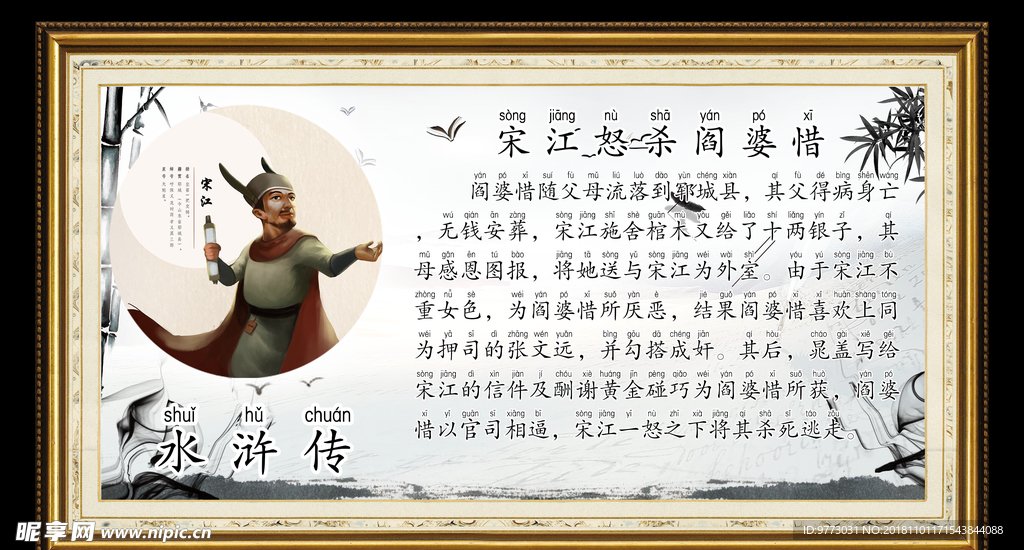 sòng jiāng nù shā yán pó xī
宋江怒杀阎婆惜
yán pó xī suí fù mǔ liú luò dào yùn chéng xiàn qí fù dé bìng shēn wáng
阎婆惜随父母流落到郓城县，其父得病身亡
wú qián ān zàng sòng jiāng shī shě guān mù yòu gěi liǎo shí liǎng yín zǐ qí
，无钱安葬，宋江施舍棺木又给了十两银子，其
mǔ gǎn ēn tú bào jiāng tā sòng yú sòng jiāng wéi wài shì yóu yú sòng jiāng bù
母感恩图报，将她送与宋江为外室。由于宋江不
zhòng nǚ sè wéi yán pó xī suǒ yàn è jié guǒ yán pó xī xǐ huān shàng tóng
重女色，为阎婆惜所厌恶，结果阎婆惜喜欢上同
wéi yā sī dí zhāng wén yuǎn bìng gōu dā chéng jiān qí hòu cháo gài xiě gěi
为押司的张文远，并勾搭成奸。其后，晁盖写给
sòng jiāng dí xìn jiàn jí chóu xiè huáng jīn pèng qiǎo wéi yán pó xī suǒ huò yán pó
宋江的信件及酬谢黄金碰巧为阎婆惜所获，阎婆
xī yǐ guān sī xiāng bī sòng jiāng yī nù zhī xià jiāng qí shā sǐ táo zǒu
惜以官司相逼，宋江一怒之下将其杀死逃走。
宋江
shuǐ hǔ chuán
水浒传
昵享网 www.nipic.cn
ID:9773031 NO:20181101171543844088